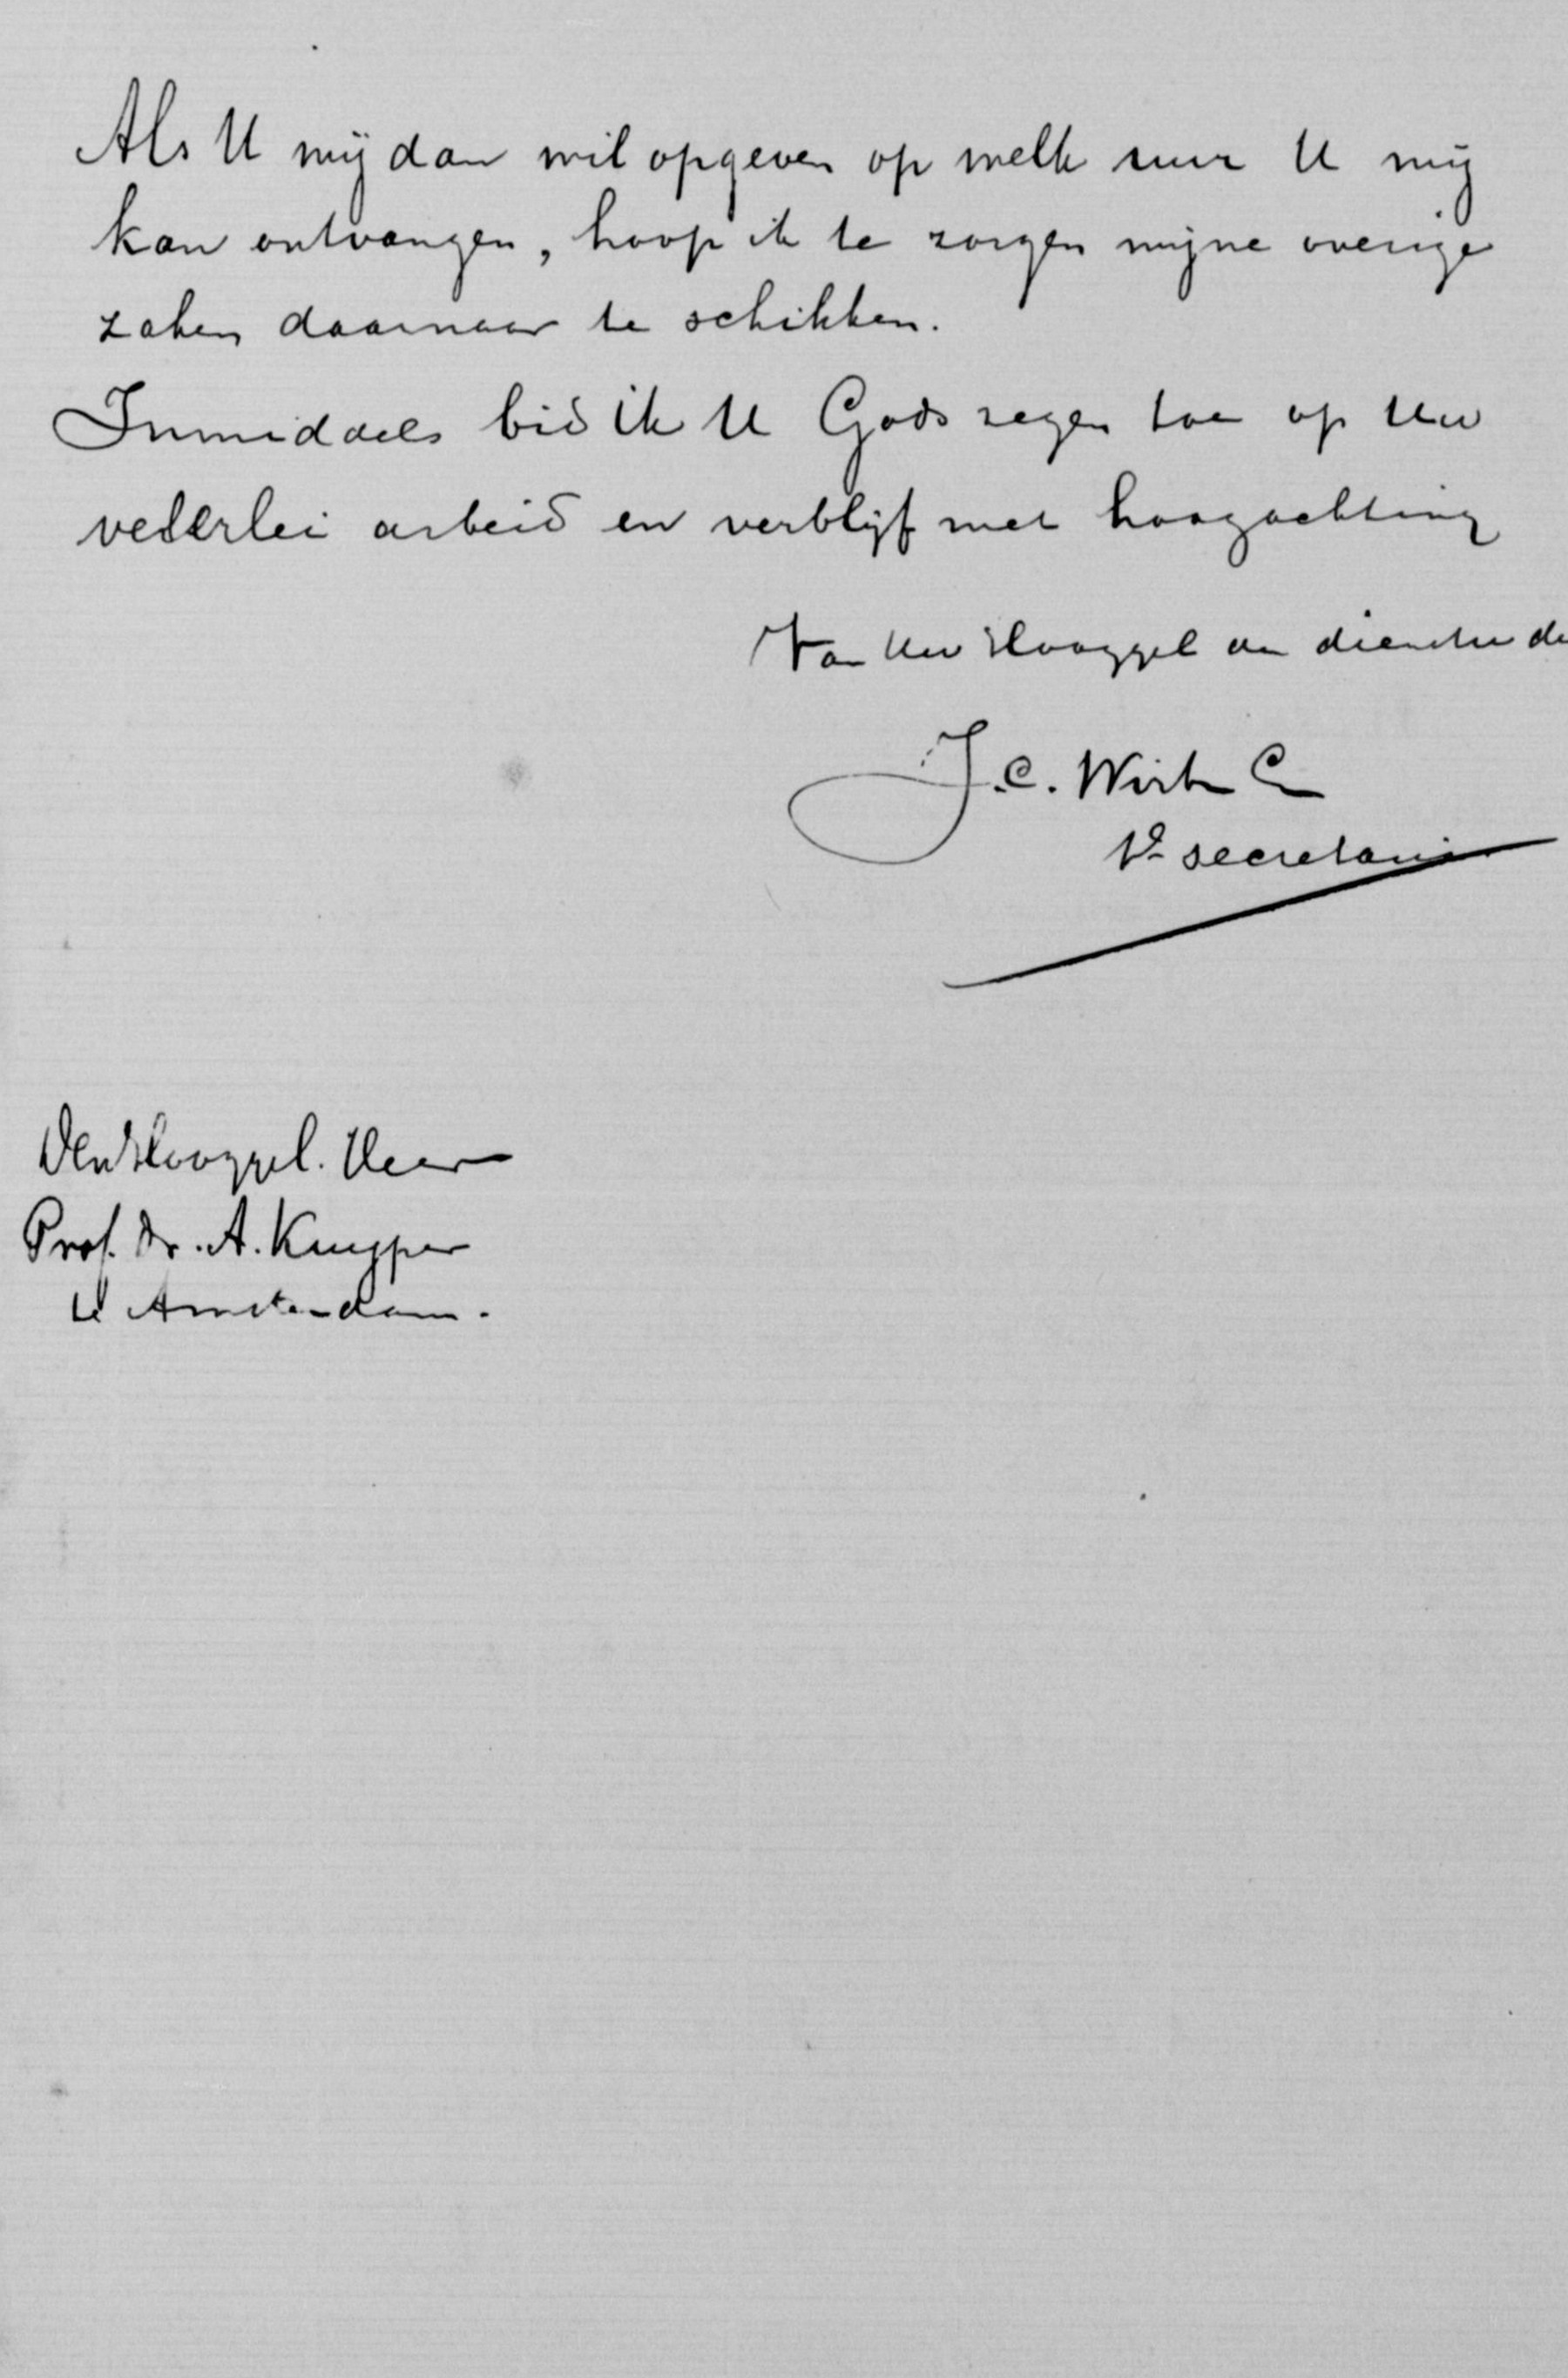 Als U mij dan wil opgeven op welk uur U mij
kan ontvangen, hoop ik te zorgen mijne overige
zaken daarnaar te schikken.
Inmiddels bid ik U Gods zegen toe op Uw
velerlei arbeid en verblijf met hoogachting
Van Uw Hooggel de dienstw de
J.C. Wirtz
secretaris
Den Hooggel. Heer
Prof. Dr. A. Kuyper
te Amsterdam.